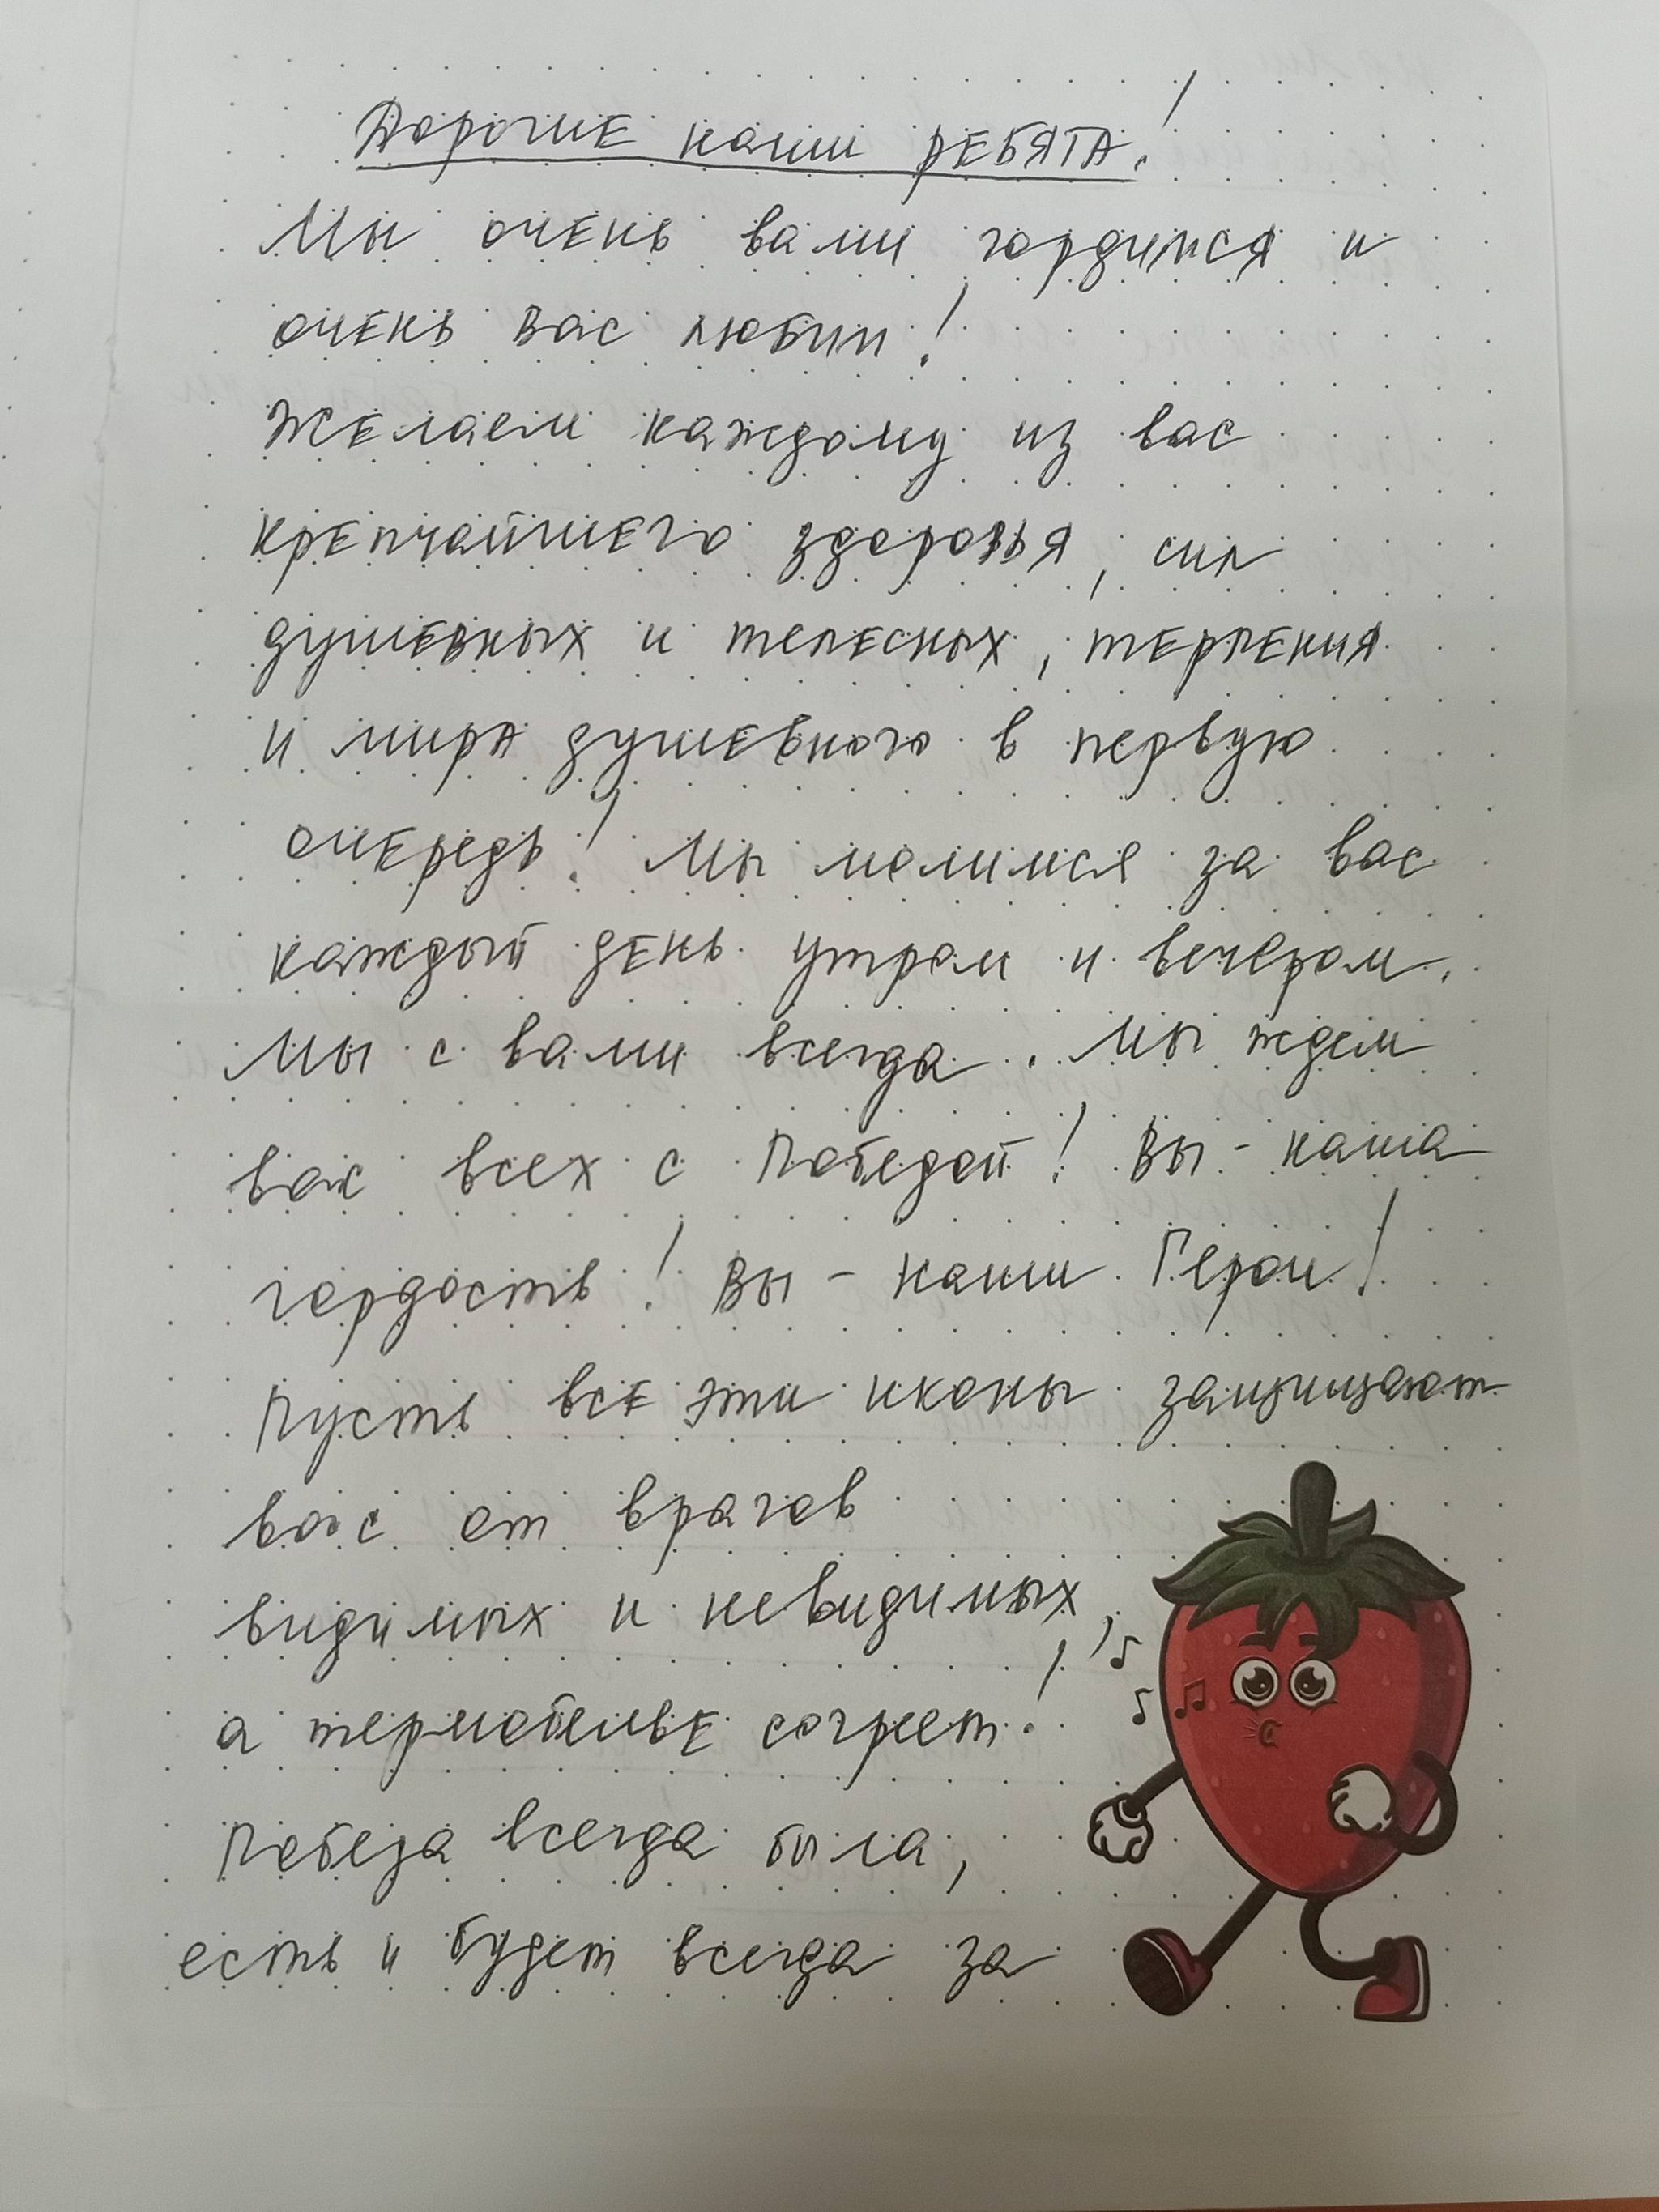 Дорогие наши РЕБЯТА!
Мы очень вами гордимся и
очень вас любим!
Желаем каждому из вас
крепчайшего здоровья, сил
душевных и телесных, терпения
и мира душевного в первую
очередь! Мы молимся за вас
каждый день утром и вечером.
Мы с вами всегда. Мы ждем
вас всех с Победой! Вы - наша
гордость! Вы - наши Герои!
Пусть все эти иконы защищают
вас от врагов
видимых и невидимых,
а термобелье согреет!
Победа всегда была,
есть и будет всегда за